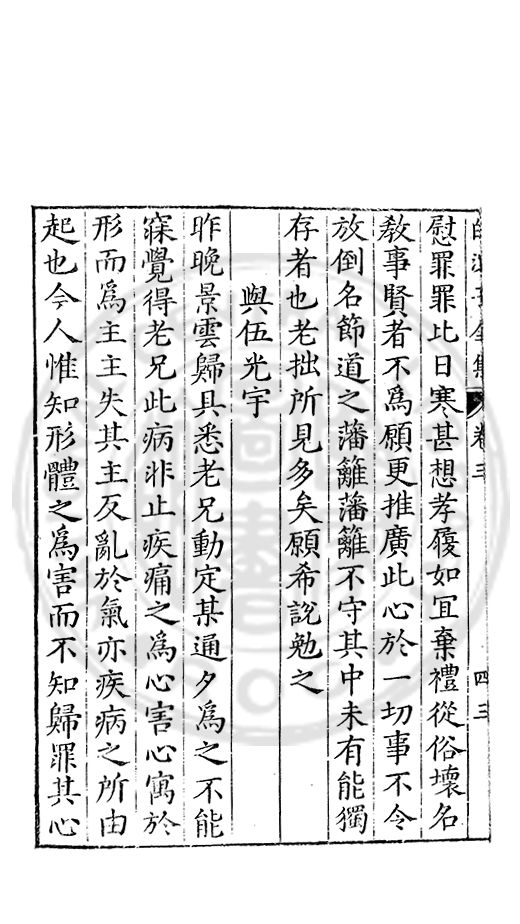 白沙子全集 卷三 四三
慰罪罪比日寒甚想孝履如冝棄禮從俗壞名
敎事賢者不爲願更推廣此心於一切事不令
放倒名節道之藩籬藩籬不守其中未有能獨
存者也老拙所見多矣願希說勉之
與伍光宇
昨晚景雲歸具悉老兄動定某通夕爲之不能
寐覺得老兄此病非止疾痛之爲心害心寓於
形而爲主主失其主反亂於氣亦疾病之所由
起也今人惟知形體之爲害而不知歸罪其心